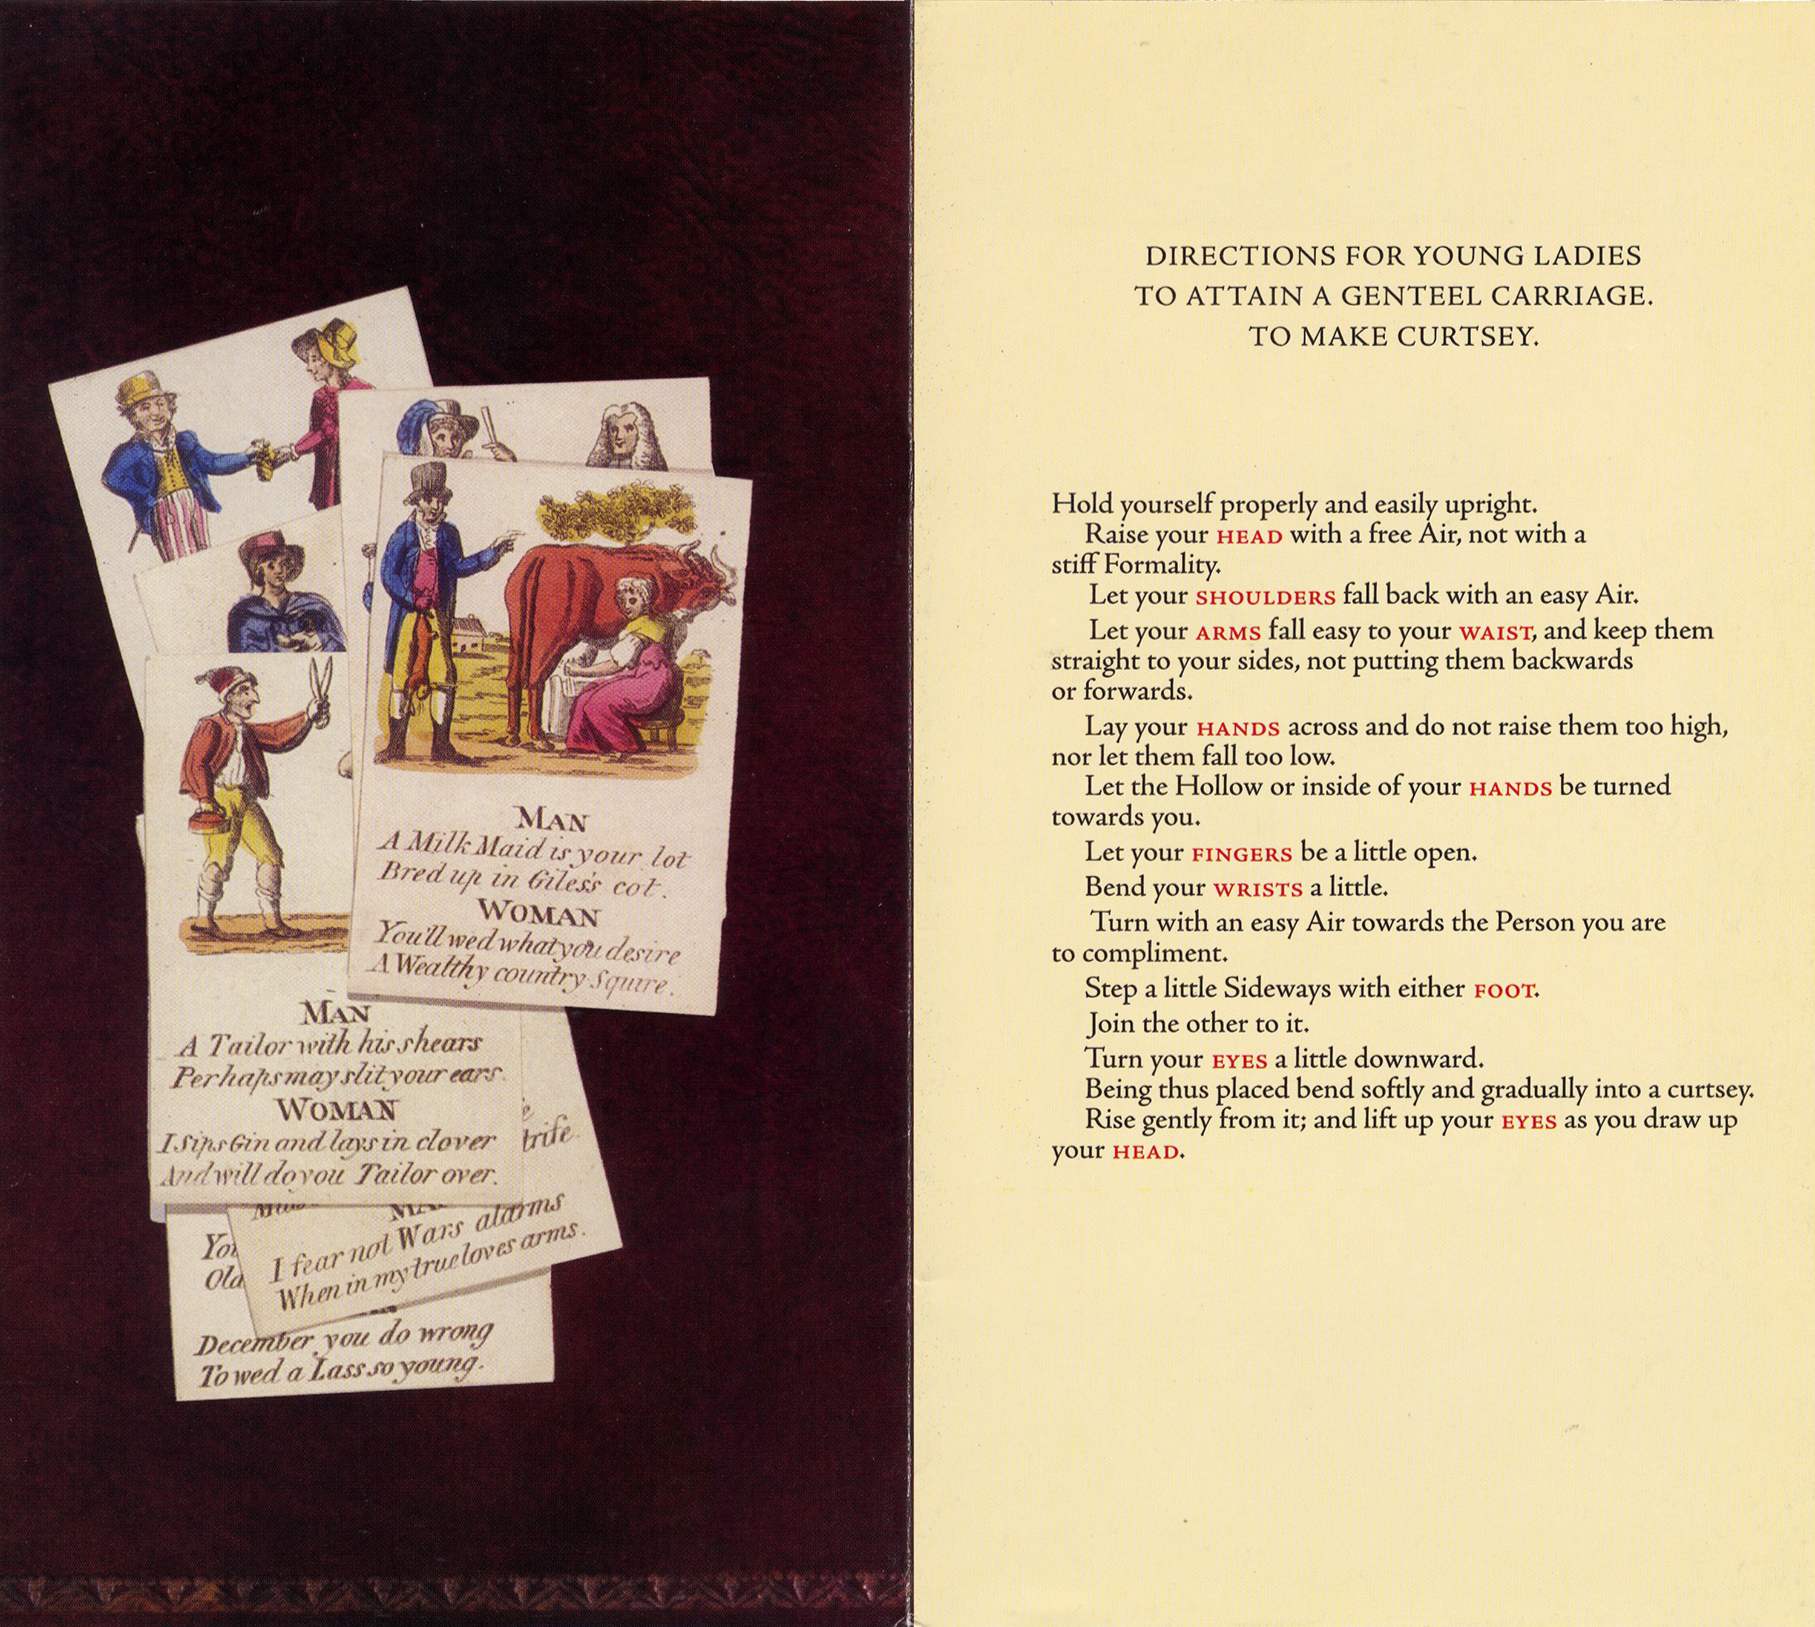 MAN
A Milk Maid is your lot
Bred up in Giles's cot.
WOMAN
You'll wed what you desire
A Wealthy country Squire.
MAN
A Tailor with his shears
Perhaps may slit your ears.
WOMAN
I Sips Gin and lays in clover
And will do you Tailor over.
I fear not Wars alarms
When in my true loves arms.
Old
December you do wrong
To wed a Lass so young.
DIRECTIONS FOR YOUNG LADIES
TO ATTAIN A GENTEEL CARRIAGE.
TO MAKE CURTSEY.
Hold yourself properly and easily upright.
Raise your HEAD with a free Air, not with a
stiff Formality.
Let your SHOULDERS fall back with an easy Air.
Let your ARMS fall easy to your WAIST, and keep them
straight to your sides, not putting them backwards
or forwards.
Lay your HANDS across and do not raise them too high,
nor let them fall too low.
Let the Hollow or inside of your HANDS be turned
towards you.
Let your FINGERS be a little open.
Bend your WRISTS a little.
Turn with an easy Air towards the Person you are
to compliment.
Step a little Sideways with either FOOT.
Join the other to it.
Turn your EYES a little downward.
Being thus placed bend softly and gradually into a curtsey.
Rise gently from it; and lift up your EYES as you draw up
your HEAD.